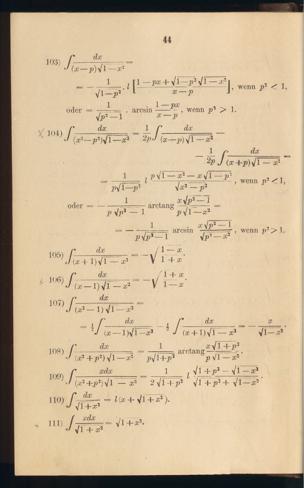 44
103) ∫ dx / (x−p)√1−x² =
= − 1/√1−p² . l [ 1−px+√1−p² √1−x² / x−p ], wenn p² < 1,
oder = 1/√p²−1 . arcsin 1−px / x−p, wenn p² > 1.
104) ∫ dx / (x²−p²)√1−x² = 1/2p ∫ dx / (x−p)√1−x² −
− 1/2p ∫ dx / (x+p)√1−x² =
= 1 / p√1−p² l p√1−x² − x√1−p² / √x²−p², wenn p² < 1,
oder = − 1 / p√p²−1 arctang x√p²−1 / p√1−x² =
= − 1 / p√p²−1 arcsin x√p²−1 / √p²−x², wenn p² > 1.
105) ∫ dx / (x+1)√1−x² = −√ 1−x / 1+x .
106) ∫ dx / (x−1)√1−x² = −√ 1+x / 1−x .
107) ∫ dx / (x²−1)√1−x² =
= ½ ∫ dx / (x−1)√1−x² − ½ ∫ dx / (x+1)√1−x² = − x / √1−x² .
108) ∫ dx / (x²+p²)√1−x² = 1 / p√1+p² arctang x√1+p² / p√1−x² .
109) ∫ xdx / (x²+p²)√1−x² = 1 / 2√1+p² l √1+p² − √1−x² / √1+p² + √1−x² .
110) ∫ dx / √1+x² = l (x + √1+x²).
111) ∫ xdx / √1+x² = √1+x².